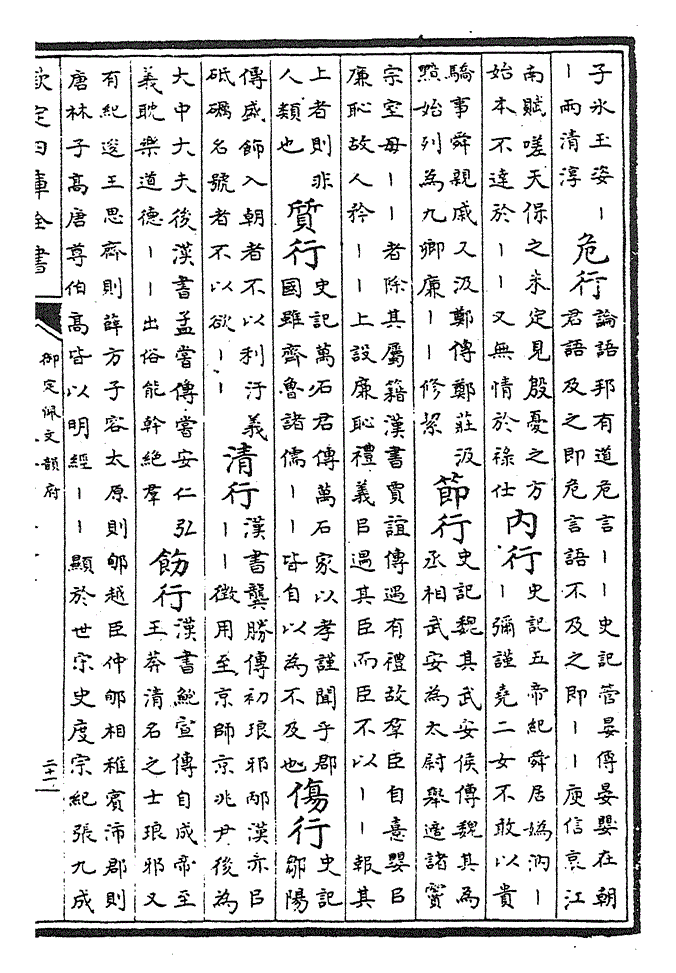 子氷玉姿丨
丨兩清淳
危行
論語邦有道危言丨丨史記管晏傳晏嬰在朝
君語及之即危言語不及之即丨丨庾信哀江
南賦嗟天保之未定見殷憂之方
始本不達於丨丨又無情於祿仕
内行
史記五帝紀舜居嬀汭丨
丨彌謹堯二女不敢以貴
驕事舜親戚又汲鄭傳鄭莊汲
黯始列為九卿廉丨丨修絜
節行
史記魏其武安侯傳魏其為
丞相武安為太尉舉適諸竇
宗室毋丨丨者除其屬籍漢書賈誼傳遇有禮故羣臣自憙嬰以
廉恥故人矜丨丨上設廉恥禮義以遇其臣而臣不以丨丨報其
上者則非
人類也
質行
史記萬石君傳萬石家以孝謹聞乎郡
國雖齊魯諸儒丨丨皆自以為不及也
傷行
史記
鄒陽
傳盛飾入朝者不以利汙義
砥礪名號者不以欲丨丨
清行
漢書龔勝傳初琅邪邴漢亦以
丨丨徵用至京師京兆尹後為
大中大夫後漢書孟嘗傳嘗安仁弘
義耽樂道德丨丨出俗能幹絶羣
飭行
漢書鮑宣傳自成帝至
王莽清名之士琅邪又
有紀逡王思齊則薛方子容太原則郇越臣仲郇相稚賓沛郡則
唐林子高唐尊伯高皆以明經丨丨顯於世宋史度宗紀張九成
欽定四庫全書
御定佩文韻府
二十一